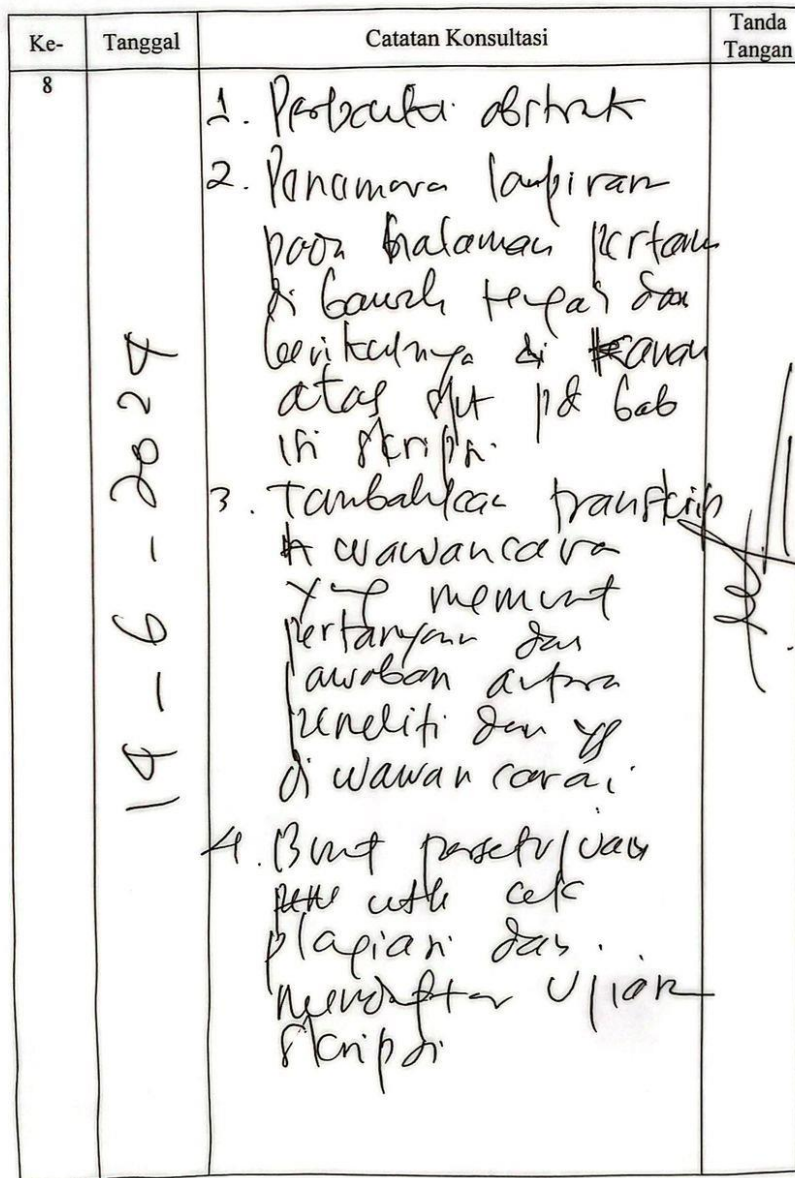 Ke-
Tanggal
Catatan Konsultasi
Tanda
Tangan
8
14 - 6 - 2024
1. Perbaiki abstrak
2. Penomoran lampiran
pada halaman pertama
di bawah tengah dan
berikutnya di kanan
atas spt pd bab
isi skripsi.
3. Tambahkan transkrip
wawancara
yg memuat
pertanyaan dan
jawaban antara
peneliti dan yg
di wawancarai.
4. Buat persetujuan
utk cek
plagiasi dan
mendaftar ujian
skripsi